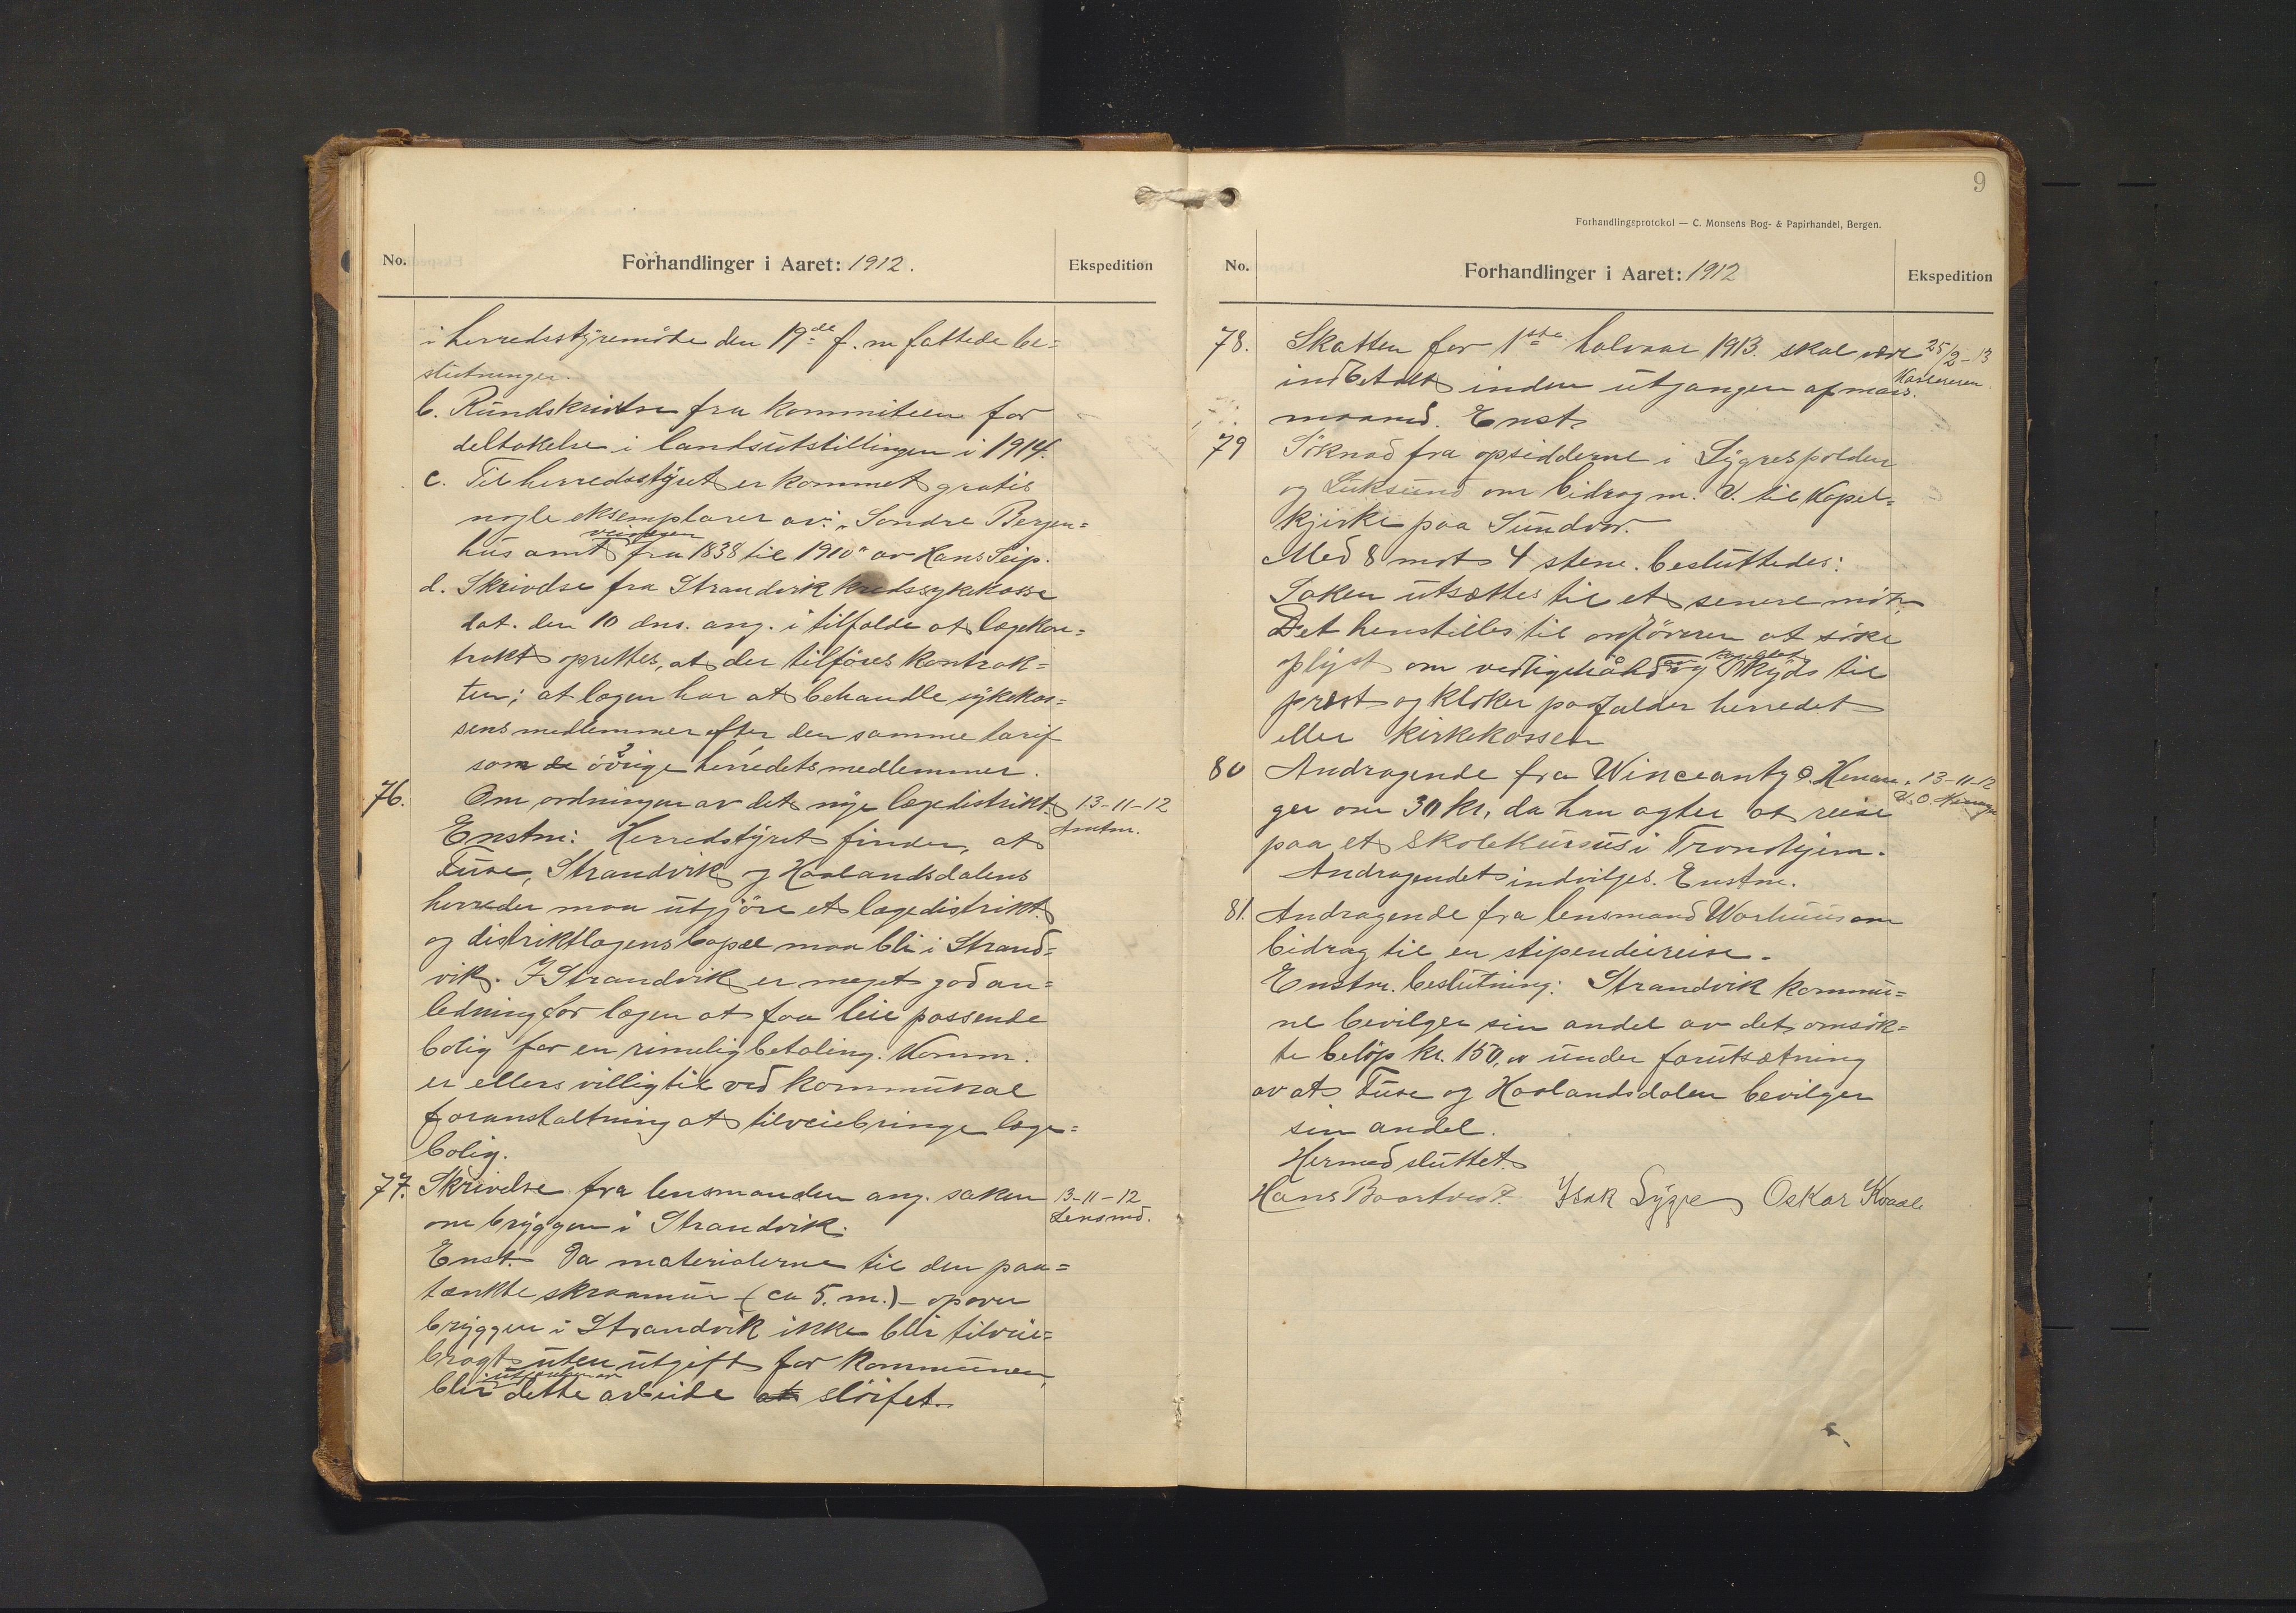 No.
Forhandlinger i Aaret: 1912.
Ekspedition
i herredsstyremöte den 19de f. m fattede be=
slutninger.
b. Rundskrivelse fra kommiteen for
deltakelse i landsutstillingen i 1914.
c. Til herredsstyret er kommet gratis
nogle eksemplarer av: „Söndre Bergen=
hus amt veivæsen fra 1838 til 1910" av Hans Seip.
d. Skrivelse fra Strandvik kredssykekasse
dat. den 10 dns. ang. i tilfælde at lægekon=
trakt oprettes, at der tilföres kontrak=
ten; at lægen har at behandle sykekas=
sens medlemmer efter den samme tarif
som de övrige herredetsmedlemmer.
76. Om ordningen av det nye lægedistrikt. 13-11-12
Enstm: Herredstyret finder, at Amtm.
Fuse, Strandvik og Haalandsdalens
herreder maa utgjöre et lægedistrikt
og distriktlægens bopæl maa bli i Strand=
vik. I Strandvik er meget god an=
ledning for lægen at faa leie passende
bolig for en rimelig betaling. Komm.
er ellers villig til ved kommunal
foranstaltning at tilveiebringe læge=
bolig.
77. Skrivelse fra lensmanden ang. saken 13-11-12
om bryggen i Strandvik. Lensmd.
Enst. Da materialerne til den paa=
tænkte skraamur - (ca 5. m.) - opover
bryggen i Strandvik ikke blir tilveie=
bragt uten utgift for kommunen,
blir utförelsen av dette arbeide at slöifet.
9
Forhandlingsprotokol — C. Monsens Bog- & Papirhandel, Bergen.
No.
Forhandlinger i Aaret: 1912
Ekspedition
78. Skatten for 1ste halvaar 1913. skal være 25/2-13
indbetalt inden utgangen af mars. Kassereren.
maaned. Enst.
79 Söknad fra opsidderne i Lygrespolden
og Luksund om bidrag m. V. til Kapel=
kjirke paa Sundvor.
Med 8 mot 4 stem. besluttedes:
Saken utsættes til et senere möte
Det henstilles til ordföreren at söke
oplyst om vedligehold av kapellet og skyds til
prest og klokker paafalder herredet
eller kirkekassen
80 Andragende fra Winceantz O. Henan= 13-11-12
ger om 30 kr, da han agter at reise V. O. Henanger
paa et skolekursus i Trondhjem.
Andragendet indvilges. Enstm.
81. Andragende fra lensmand Warhuus om
bidrag til en stipendiereise.
Enstm. beslutning: Strandvik kommu=
ne bevilger sin andel av det omsök=
te belöp kr. 150,00 under forutsætning
av at Fuse og Haalandsdalen bevilger
sin andel.
Hermed sluttet.
Hans Baartvedt. Isak Lygre Oskar Kvaale